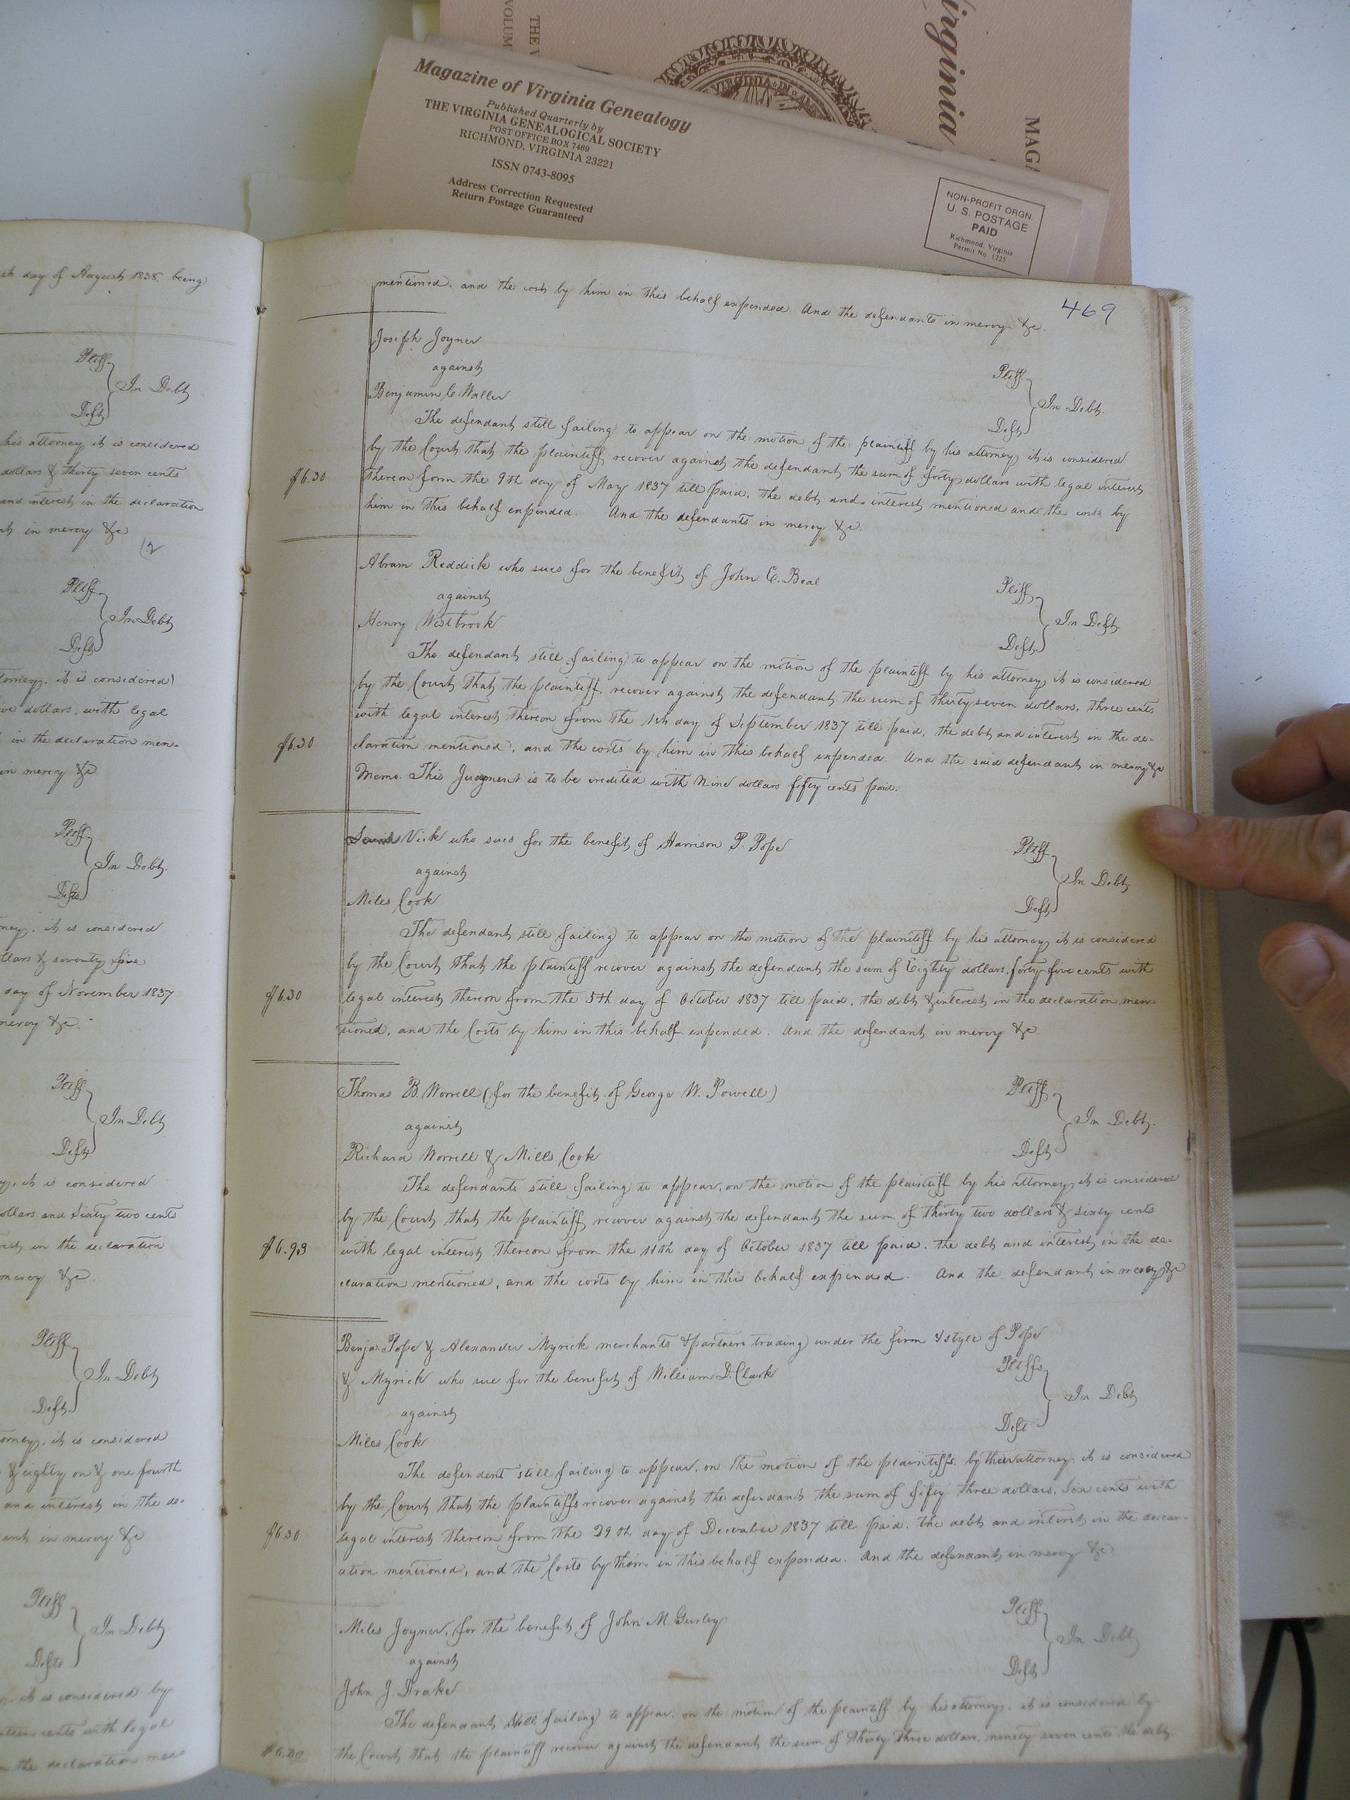 THE V
VOLUM
Virginia
MAGA
VIRGINIA
Magazine of Virginia Genealogy
Published Quarterly by
THE VIRGINIA GENEALOGICAL SOCIETY
POST OFFICE BOX 7469
RICHMOND, VIRGINIA 23221
ISSN 0743-8095
Address Correction Requested
Return Postage Guaranteed
NON-PROFIT ORGN.
U. S. POSTAGE
PAID
Richmond, Virginia
Permit No. 1225
day of August 1838. being
Pltff
In Debt
Deft
his attorney it is considered
dollars & thirty seven cents
and interest in the declaration
in mercy &c
12
Pltff
In Debt
Deft
attorney. it is considered
dollars, with legal
in the declaration men-
in mercy &c
Pltff
In Debt.
Defts
it is considered
dollars & seventy five
day of November 1837
mercy &c.
Pltff
In Debt
Deft
it is considered
dollars and sixty two cents
in the declaration
mercy &c.
Pltff
In Debt
Deft.
attorney, it is considered
& eighty on & one fourth
and interest in the de-
in mercy &c
Pltff
In Debt
Defts
it is considered by
cents with legal
in the declaration men
469
mentioned, and the costs by him in this behalf expended. And the defendants in mercy &c.
Joseph Joyner
Pltff
against
In Debt.
Benjamin C. Waller
Deft
The defendant still failing to appear on the motion of the plaintiff by his attorney it is considered
by the Court that the plaintiff recover against the defendant the sum of forty dollars with legal interest
$6.30
thereon from the 9th day of May 1837 till paid, the debt and interest mentioned and the costs by
him in this behalf expended. And the defendants in mercy &c.
Abram Reddick who sues for the benefit of John C. Beal
Pltff
against
In Debt
Henry Westbrook
Deft
The defendant still failing to appear on the motion of the plaintiff by his attorney it is considered
by the Court that the plaintiff, recover against the defendant the sum of thirty seven dollars, three cents
with legal interest thereon from the 1st day of September 1837 till paid, the debt and interest in the de-
$6.30
claration mentioned, and the costs by him in this behalf expended. And the said defendant in mercy &c
Memo: This Judgment is to be credited with Nine dollars fifty cents paid.
Vick who sues for the benefit of Harrison P. Pope
Pltff
against
In Debt
Miles Cook
Deft
The defendant still failing to appear on the motion of the plaintiff by his attorney it is considered
by the Court that the plaintiff recover against the defendant the sum of Eighty dollars, forty five cents with
$6.30
legal interest thereon from the 5th day of October 1837 till paid, the debt & interest in the declaration men-
tioned, and the Costs by him in this behalf expended. And the defendant in mercy &c
Thomas B. Worrell (for the benefit of George W. Powell)
Pltff
against
In Debt.
Richard Worrell & Mills Cook
Deft
The defendants still failing to appear, on the motion of the plaintiff by his attorney it is considered
by the Court that the plaintiff, recover against the defendant the sum of thirty two dollars & sixty cents
$6.93
with legal interest thereon from the 11th day of October 1837 till paid, the debt and interest in the de-
claration mentioned, and the costs by him in this behalf expended. And the defendant in mercy &c
Benja. Pope & Alexander Myrick merchants & partners trading under the firm & style of Pope
& Myrick who sue for the benefit of William D. Clark
Pltffs
against
In Debt
Miles Cook
Deft
The defendent still failing to appear, on the motion of the plaintiffs, by their attorney, it is considered
by the Court that the plaintiffs recover against the defendant the sum of fifty three dollars, cents with
$6.30
legal interest thereon from the 29th day of December 1837 till paid, the debt and interest in the declar-
ation mentioned, and the Costs by them in this behalf expended. And the defendant in mercy &c
Miles Joyner, for the benefit of John M. Gurley
Pltff
against
In Debt
John J. Drake
Deft
The defendant still failing to appear, on the motion of the plaintiff by his attorney, it is considered by
the Court that the plaintiff recover against the defendant the sum of thirty three dollars, ninety seven cents the debt